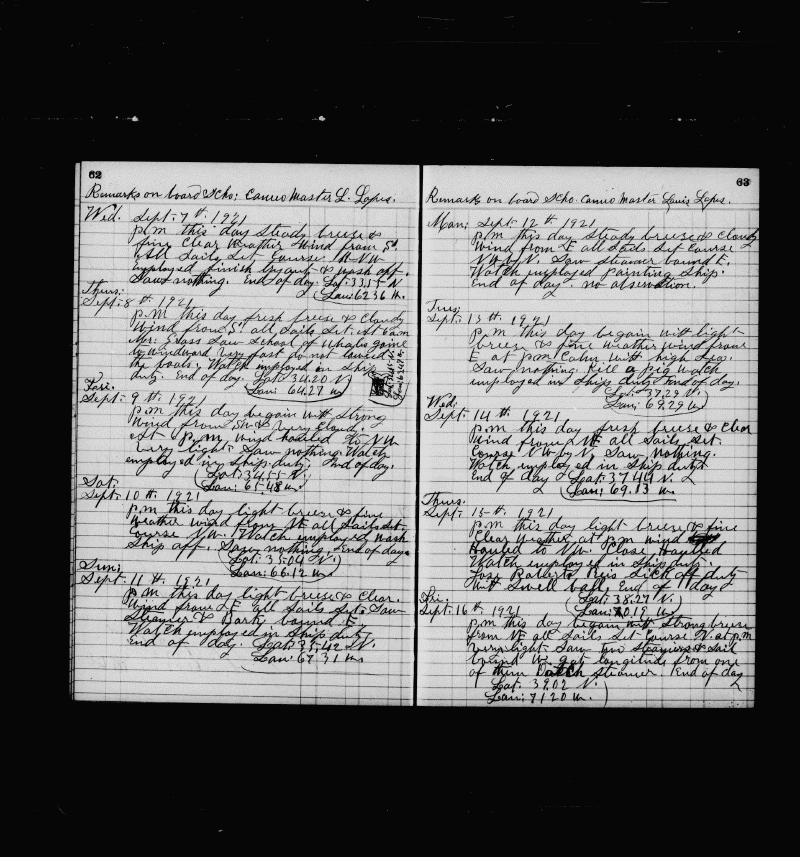 62
Remarks on board Scho: Cameo Master L. Lopes.
Wed. Sept: 7th. 1921
p.m this day steady breese &
fine Clear Weather Wind from S.
All Sails Set. Course N. NW
Employed finish by out & wash off.
Saw nothing. End of day. Lat: 33.15 N
Lon: 62.36 W.
Thurs:
Sept: 8th. 1921
p.m this day fresh breese & Cloudy
Wind from S. all Sails Set. at 6 a.m
Mr: Enos Saw School of Whales going
to windward very fast do not lowered
the boats. Watch employed in Ship
duty. End of day. Lat: 34.20 N.
Lon: 64.27 W.
Fri.
Sept: 9th. 1921
p.m this day began with Strong
Wind from SW & very Cloudy.
at p.m. wind hauled to NW
very light. Saw nothing. Watch
employed in Ship duty. End of day.
Lat: 34.55 N.
Lon: 65.48 W.
Sat:
Sept: 10th. 1921
p.m this day light breese & fine
Weather wind from NE all Sails Set.
Course NW. Watch employed Wash
Ship off. Saw nothing. End of day
Lat: 35.04 N.
Lon: 66.12 W
Sun;
Sept: 11th. 1921
p.m this day light breese & Clear.
Wind from E all Sails Set. Saw
Steamer & Bark bound E.
Watch employed in Ship duty
End of day. Lat: 35.42 N.
Lon: 67.31 W
63
Remarks on board Scho. Cameo Master Louis Lopes.
Mon; Sept: 12th. 1921
p.m this day Steady breese & Cloudy
Wind from E all Sails Set Course
NW by N. Saw steamer bound E.
Watch employed painting Ship.
End of day. no observation.
Tues;
Sept: 13th. 1921
p.m this day began with light
breese & fine weather wind from
E at p.m Calm with high Sea.
Saw nothing. Kill a pig Watch
employed in Ships duty. End of day.
Lat: 37.29 N.
Lon: 69.29 W
Wed;
Sept: 14th. 1921
p.m this day fresh breese & Clear
Wind from NE all Sails Set.
Course NW by N Saw nothing.
Watch employed in Ship duty
End of day Lat: 37.44 N.
Lon: 69.13 W.
Thurs.
Sept: 15th. 1921
p.m this day light breese & fine
Clear Weather, at p.m wind
Hauled to NW. Close Haulled
Watch employed in Ship duty.
Jose Roberto Reis Sick off duty
with Swell ball. End of day
Lat: 38.27 N.
Lon: 70.19 W.
Fri.
Sept: 16th. 1921
p.m this day began with Strong breese
from NE all Sails Set Course N. at p.m
very light. Saw two Steamers & Sail
bound W. got longitude from one
of them Dutch Steamer. End of day
Lat: 39.02 N.
Lon: 71.20 W.